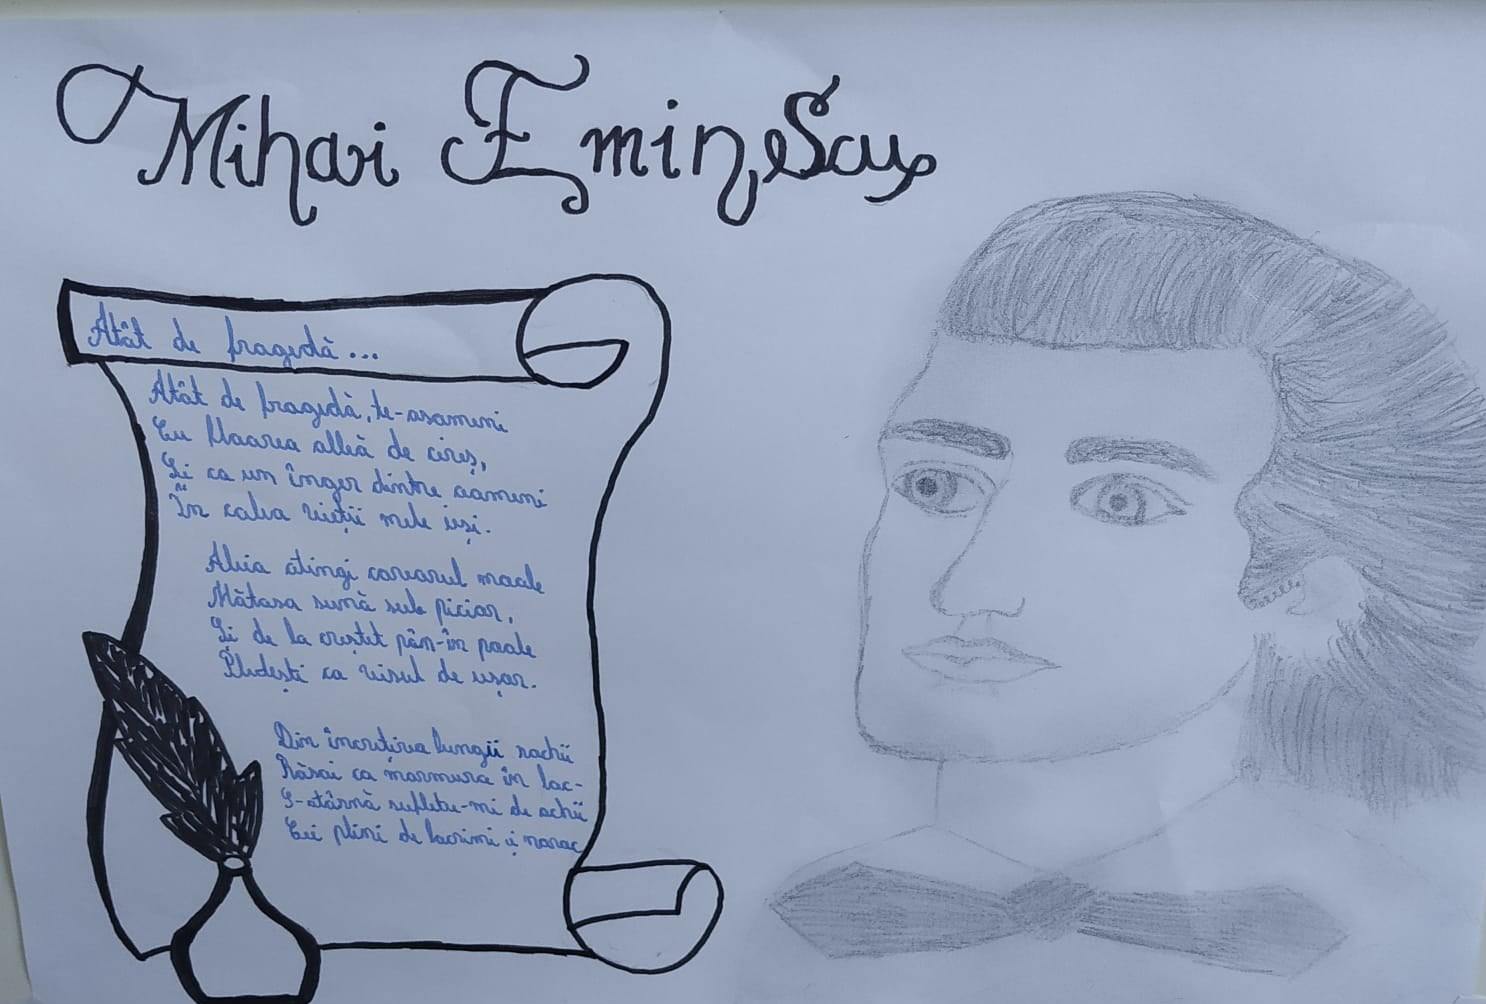 Mihai Eminescu
Atât de fragedă...
Atât de fragedă, te-asameni
Cu floarea albă de cireș,
Și ca un înger dintre oameni
În calea vieții mele ieși.
Abia atingi covorul moale
Mătasa sună sub picior,
Și de la creștet pân-în poale
Plutești ca visul de ușor.
Din încrețirea lungii rochii
Răsai ca marmura în loc-
S-atârnă sufletu-mi de ochii
Cei plini de lacrimi și noroc